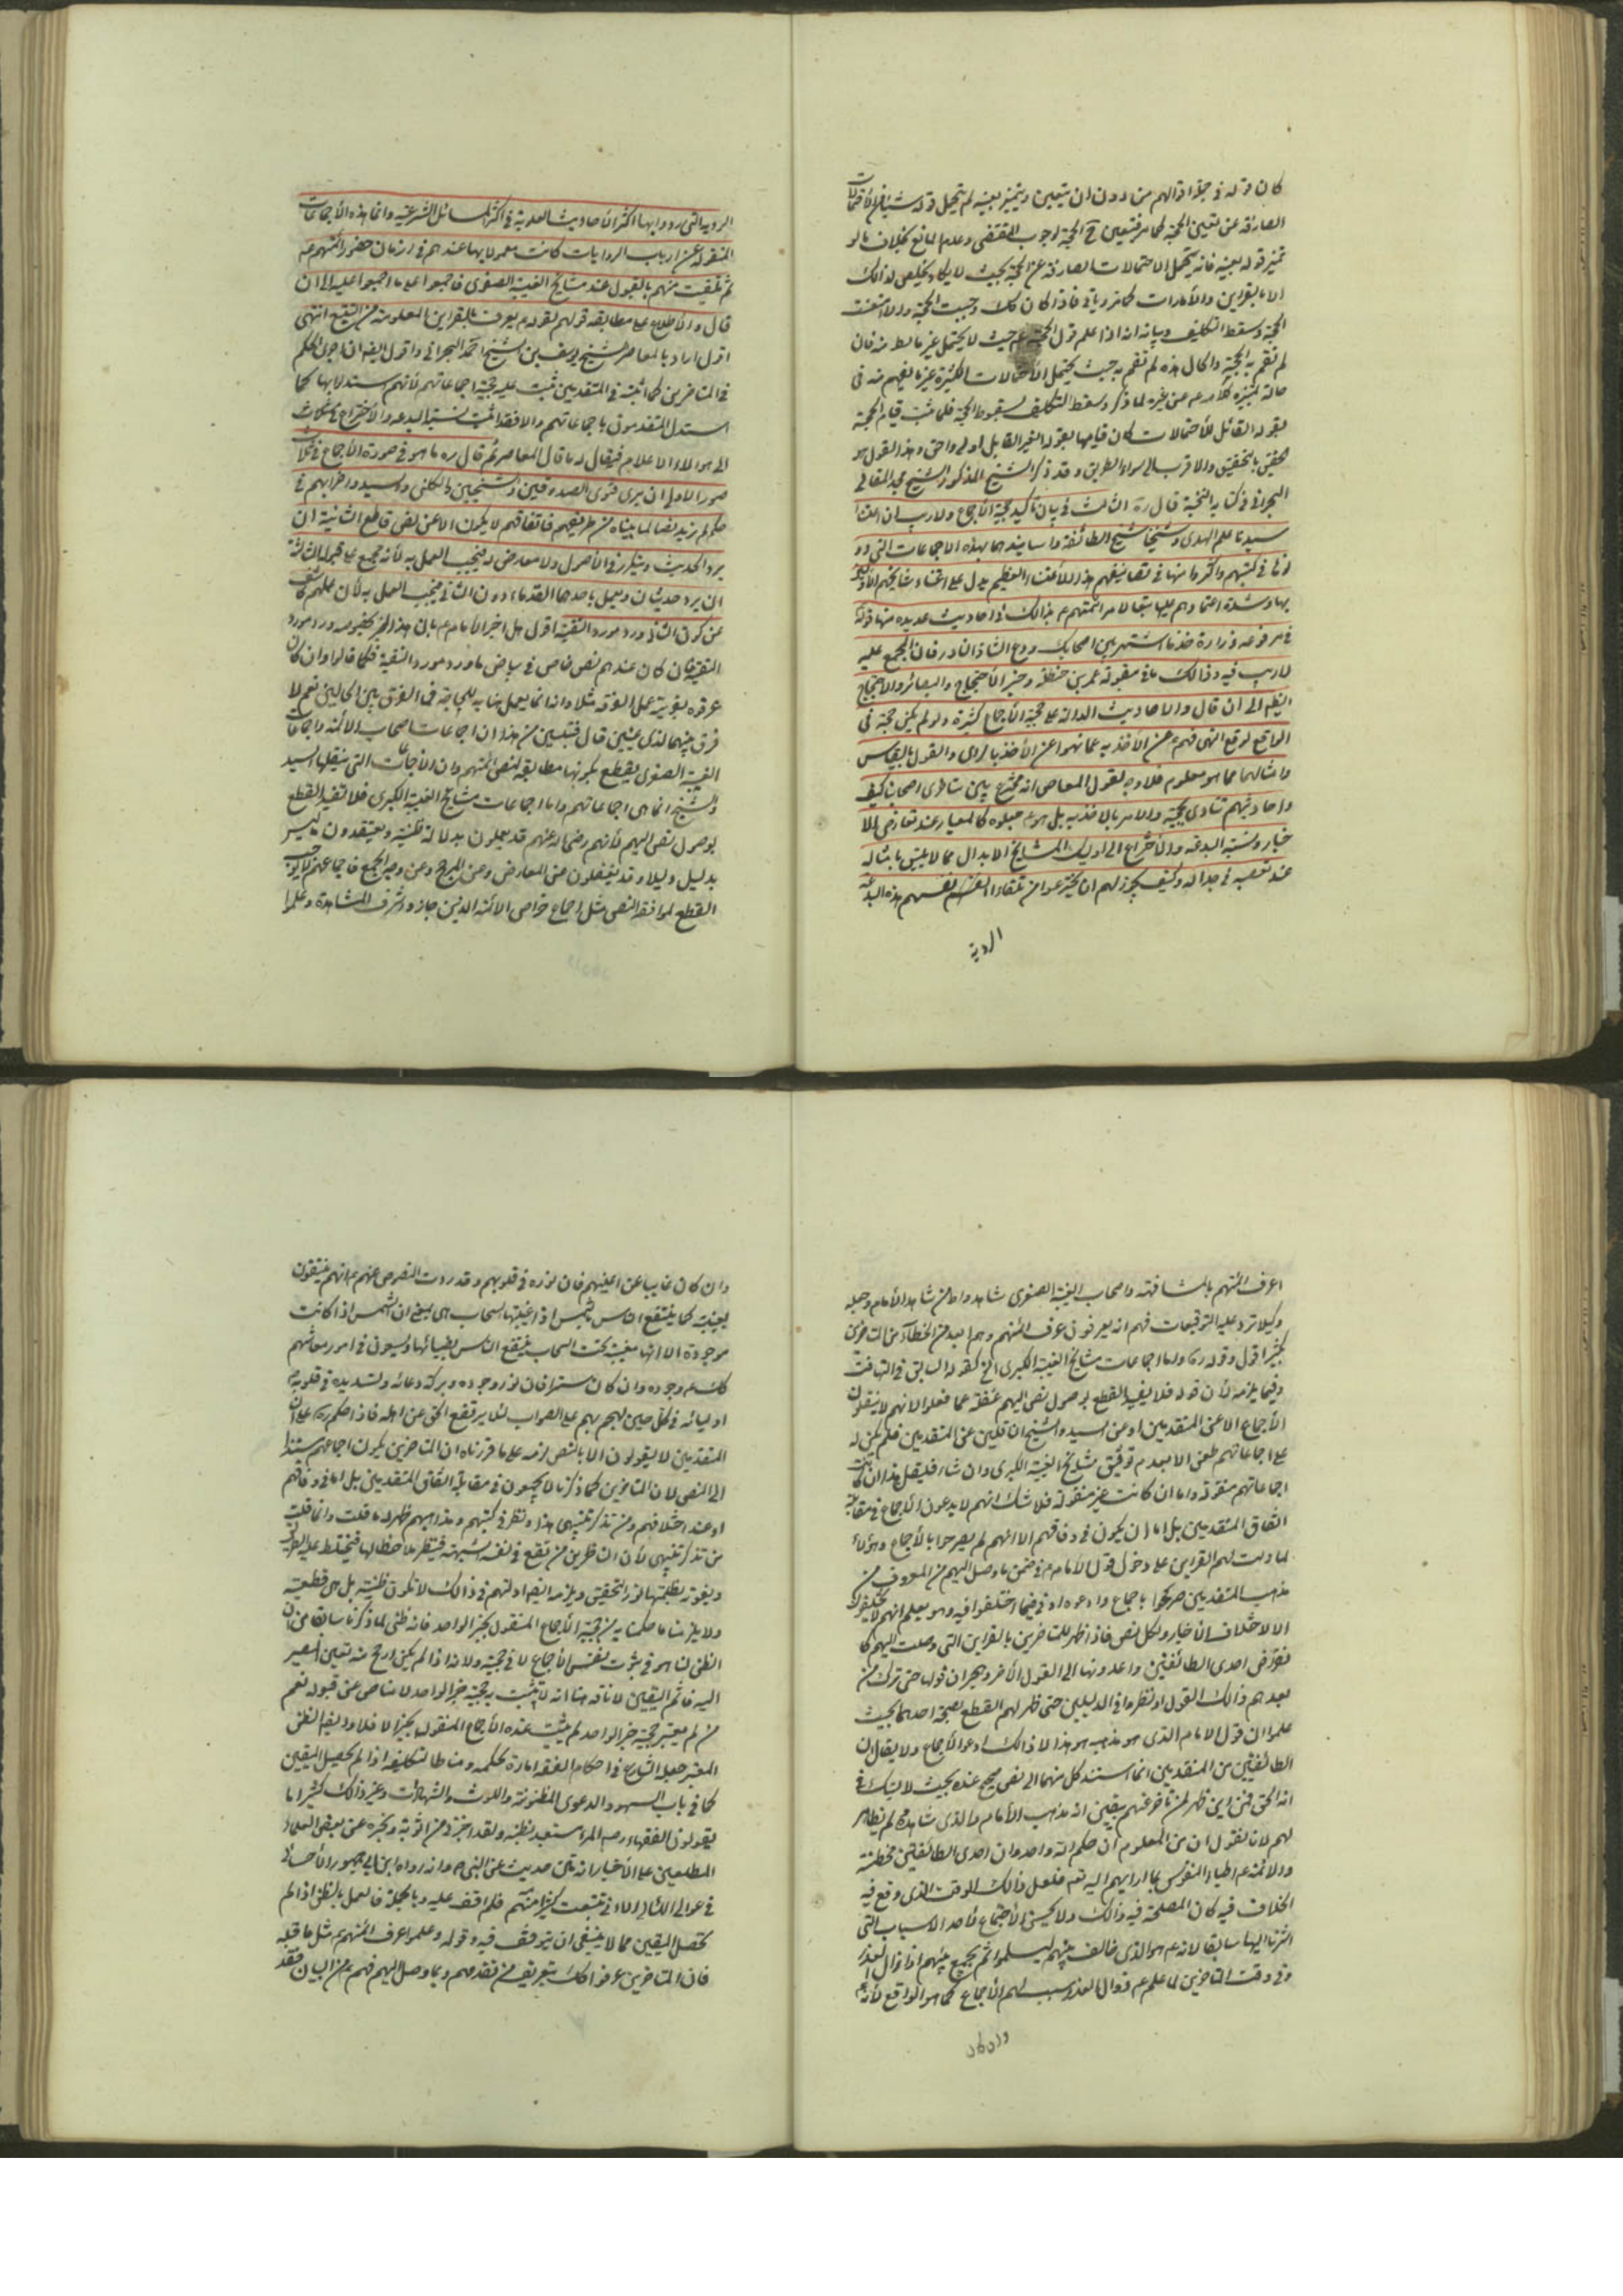 كان قوله في جملة اقوالهم من دون ان يتعين ويتميز بعينه لم يحتمل قوله شيئا من الأحتمالات
الصارفة عن تعيين الحجة كما مر فتعين في الحجة لوجوب المقتضى وعدم المانع بخلاف ما لو
تميز قوله بعينه فانه يحتمل الاحتمالات الصارفة عن الحجة بحيث لا يكاد يخلص لذالك
الا بالقراين والأمارات كما مر وياتي فاذا كان كك وجبت الحجة والا امتنعت
الحجة وسقط التكليف وبيانه انه اذا علم قول الحجة ع م حيث لا يحتمل غير ما يظهر منه فان
لم تقم به الحجة والحال هذه لم تقم به حيث يحتمل الأحتمالات الكثيرة غير ما يفهم منه في
حالة تميزه كلامه ع من غيره لما ذكر وسقط التكليف لسقوط الحجة فلما ثبت قيام الحجة
بقوله القائل للأحتمالات كان قيامها بقوله الغير القابل اولى واحق وهذا القول هو
الحقيق بالتحقيق والاقرب الى سواء الطريق وقد ذكر الشيخ المذكور الشيخ عبد المقالي
البحراني في كتابه النخبة قال ره الثالث في بيان تأكيد حجية الأجماع ولا ريب ان اعتنا
سيدنا علم الهدى وشيخنا شيخ الطائفة واسانيدهما بهذه الاجماعات التي دو
نوها في كتبهم واكثروا منها في تصانيفهم هذا الأعتناء العظيم يدل على اعتناء مشايخهم الأولين
بها وشدة اعتمادهم عليها امتثالا لامر ائمتهم ع بذالك في احاديث عديده منها قوله
في مرفوعه زرارة خذ ما اشتهر بين اصحابك ودع الشاذ النادر فان المجمع عليه
لا ريب فيه وذالك ما في مقبولة عمر بن حنظلة وخبر الأحتجاج والبصائر والاحتجاج
ايضا الى ان قال والاحاديث الدالة على حجية الأجماع كثيرة ولو لم يكن حجة في
الواقع لوقع النهي فيهم ع عن الاخذ به كما نهوا عن الأخذ بالراى والقول بالقياس
وامثالهما مما هو معلوم فلا وجه لقول المعاصر انه مخترع بين متاخرى اصحابنا كيف
واحاديثهم تنادى بحجيته والامر بالاخذ به بل هم ع جعلوه كالمعيار عند تعارض الا
خبار ونسبة البدعة والأختراع الى اوليك المشايخ الابدال مما لا يليق بامثاله
عند تعصبه في جداله وكيف يجوز لهم ان يخترعوا من تلقاء انفسهم هذه البدعة
الردية
الرديه التي ردوا بها اكثر الأحاديث العلوية في اكثر المسائل الشرعيه وانما هذه الأجماعات
المنقوله عن ارباب الروايات كانت معمولا بها عندهم في ازمان حضور ائمتهم ع
ثم تلقيت منهم بالقبول عند مشايخ الغيبة الصغرى فاجمعوا على ما اجمعوا عليه الى ان
قال والأطلاع على مطابقة قولهم لقوله ع يعرف بالقراين المعلومة من التتبع انتهى
اقول اراد بالمعاصر الشيخ يوسف بن الشيخ احمد البحراني واقول ايضا ان اجرى الحكم
في المتاخرين كما اثبته في المتقدمين ثبت عليه حجية اجماعاتهم لأنهم استدلوا بها كما
استدل المتقدمون باجماعاتهم والا فقد اثبت نسبة البدعه والأختراع
الى هولاء الاعلام فيقال له ما قال المعاصر ثم قال ره ما هو في صورة الأجماع في ثلاث
صور الاولى ان يرى فتوى الصدوقين والشيخين والكليني والسيد واضرابهم في
حكم لم نر به نصا لما بيناه من طريقتهم فاتفاقهم لا يكون الا عن نص قاطع الثانية ان
يرد الحديث ويتكرر في الأصول ولا معارض له فيجب العمل به لأنه مجمع على قبوله الثالثة
ان يرد حديثان ويعمل باحدهما القدماء دون الثاني فيجب العمل به لأن عملهم كاشف
عن كون الثاني ورد مورد التقية اقول هل اخبر الأمام ع بان هذا الخبر بخصوصه ورد مورد
التقية فان كان عندهم نص خاص في بيان ما ورد مورد التقية فكما قالوا وان كان
عرفوه بقرينة عمل الفرقة مثلا وانه انما يعمل بما به للحاجة فما الفرق بين الحالين نعم لا
فرق بينهما لذى عينين قال فتبين من هذا ان اجماعات اصحاب الائمة واجماعات
الغيبة الصغرى يقطع بكونها مطابقة لنص ائمتهم وان الأجماعات التي ينقلها السيد
والشيخ انما هي اجماعاتهم واما اجماعات مشايخ الغيبة الكبرى فلا تفيد القطع
بوصول نص اليهم لأنهم رضي الله عنهم قد يعملون بدلالة ظنية ويعتقدون ما ليس
بدليل دليلا وقد يغفلون عن المعارض وعن المرجح وعن وجه الجمع فاجماعهم لا يوجب
القطع لموافقة النص مثل اجماع خواص الائمة الذين حازوا شرف المشاهدة وعلموا
اعرف ائمتهم بالمشافهة واصحاب الغيبة الصغرى شاهدوا من شاهد الأمام وجعله
وكيلا ترد عليه التوقيعات فهم انه يعرفون عرف ائمتهم وهم ابعد من الخطاء من المتاخرين
بكثير اقول وقوله ره واما اجماعات مشايخ الغيبة الكبرى الخ كقوله السابق في التهافت
وفيما يلزمه لأن قوله فلا يفيد القطع بوصول نص اليهم غفلة عما فعلوا لانهم لا ينقلون
الأجماع الا عن المتقدمين او عن السيد والشيخ الناقلين عن المتقدمين فلم يكن له
على اجماعاتهم طعن الا بعدم توثيق مشايخ الغيبة الكبرى وان شاء فليقل هذا ان كانت
اجماعاتهم منقولة واما ان كانت غير منقولة فلا شك انهم لا يدعون الأجماع في مقابلة
اتفاق المتقدمين بل اما ان يكون في وفاقهم الا انهم لم يصرحوا بالأجماع وهؤلاء
لما دلت لهم القراين على دخول قول الأمام ع في ضمن ما وصل اليهم من المعروف من
مذهب المتقدمين صرحوا باجماع وادعوه او في فيما اختلفوا فيه وهو يعلم انهم لا يختلفون
الا لاختلاف الأخبار ولكل نص فاذا ظهر للمتاخرين بالقراين التي وصلت اليهم كا
نقراض احدى الطائفتين واعدونها الى القول الأخر وهجران قولها حتى ترك من
بعدهم ذالك القول او نظروا في الدليلين حتى ظهر لهم القطع بصحة احدهما بحيث
علموا ان قول الامام الذى هو مذهبه هو هذا لا ذالك ادعوا الأجماع ولا يقال ان
الطائفتين من المتقدمين انما استند كل منهما الى نص صحيح عنده بحيث لا يشك في
انه الحق فمن اين ظهر لمن تاخر عنهم بيقين انه مذهب الأمام والذى شاهده لم يظهر
لهم لانا نقول ان من المعلوم ان حكم الله واحد وان احدى الطائفتين مخطئة
والائمة ع اطباء النفوس بما اراهم الله تعالى فلعل ذالك الوقت الذى وقع فيه
الخلاف فيه كان المصلحة فيه ذالك ولا يحسن الأجتماع لأحد الاسباب التي
اشرنا اليها سابقا لانه ع هو الذى خالف بينهم ليسلموا ثم يجمع بينهم اذا زال العذر
وفي وقت المتاخرين لما علم ع زوال العذر سبب لهم الأجماع كما هو الواقع لأنه ع
وان كان
وان كان غايبا عن اعينهم فان نوره في قلوبهم وقد وردت النصوص عنهم ع انهم ينتفعون
بغيبته كما ينتفع الناس بالشمس اذا غيبتها السحاب اى يعني ان الشمس اذا كانت
موجودة الا انها مغيبة تحت السحاب ينتفع الناس بضيائها ويسعون في امور معاشهم
كك ع وجوده وان كان مستترا فان نور وجوده وبركة دعائه وتسديده في قلوب
اوليائه في كل حين يهجم بهم على الصواب لئلا يرتفع الحق عن اهله فاذا حكم ره على ان
المتقدمين لا يقولون الا بالنص لزمه على ما قررناه ان المتاخرين يكون اجماعهم مستندا
الى النص لان المتاخرين كما ذكرنا لا يجمعون في مقابلة اتفاق المتقدمين بل اما في وفاقهم
او عند اختلافهم ومن تذكر تنبيهي هذا ونظر في كتبهم ومذاهبهم ظهر له ما قلت وانما قلت
من تذكر تنبيهي لأن الناظرين من تقع في نفسه الشبهة فينظر ملاحظا لها فيختلط عليه الطريق
ويفوته بظلمتها نور التحقيق ويلزمه ايضا ادلتهم في ذالك لا تكون ظنية بل هي قطعية
ولا يلزمنا ما حكمنا به من حجية الأجماع المنقول بخبر الواحد فانه ظني لما ذكرنا سابقا من ان
الظن انما هو في ثبوت نفس الأجماع لا في حجيته ولانه اذا لم يكن ارجح منه تعين المصير
اليه قائم اليقين لأنا قد بينا انه لا تثبت به حجية خبر الواحد لا مناص عن قبوله نعم
من لم يعتبر حجية خبر الواحد لم يثبت عنده الأجماع المنقول بخبر الا فلا وايضا الظن
المعتبر جعله الشارع في احكام الفقه امارة لحكمه ومناطا لتكليفه اذا لم يحصل اليقين
كما في باب السهو والدعوى المظنونة واللوث والشهادات وغير ذالك كثيرا ما
يقولون الفقهاء رحمهم المرء متعبد بظنه ولقد اخبرني من اثق به وبخبره عن بعض العلماء
المطلعين على الأخبار انه متن حديث عن النبي ص وانه رواه ابن ابي جمهور الأحسائي
في عوالي اللئالي الا اني تتبعت كثيرا منه فلم اقف عليه وبالجملة فالعمل بالظن اذا لم
تحصل اليقين مما لا ينبغي ان يتوقف فيه وقوله وعلموا عرف ائمتهم ع مثل ما قبله
فان المتاخرين عرفوا كك بتعريف من تقدمهم وبما وصل اليهم فهم من البيان فقد